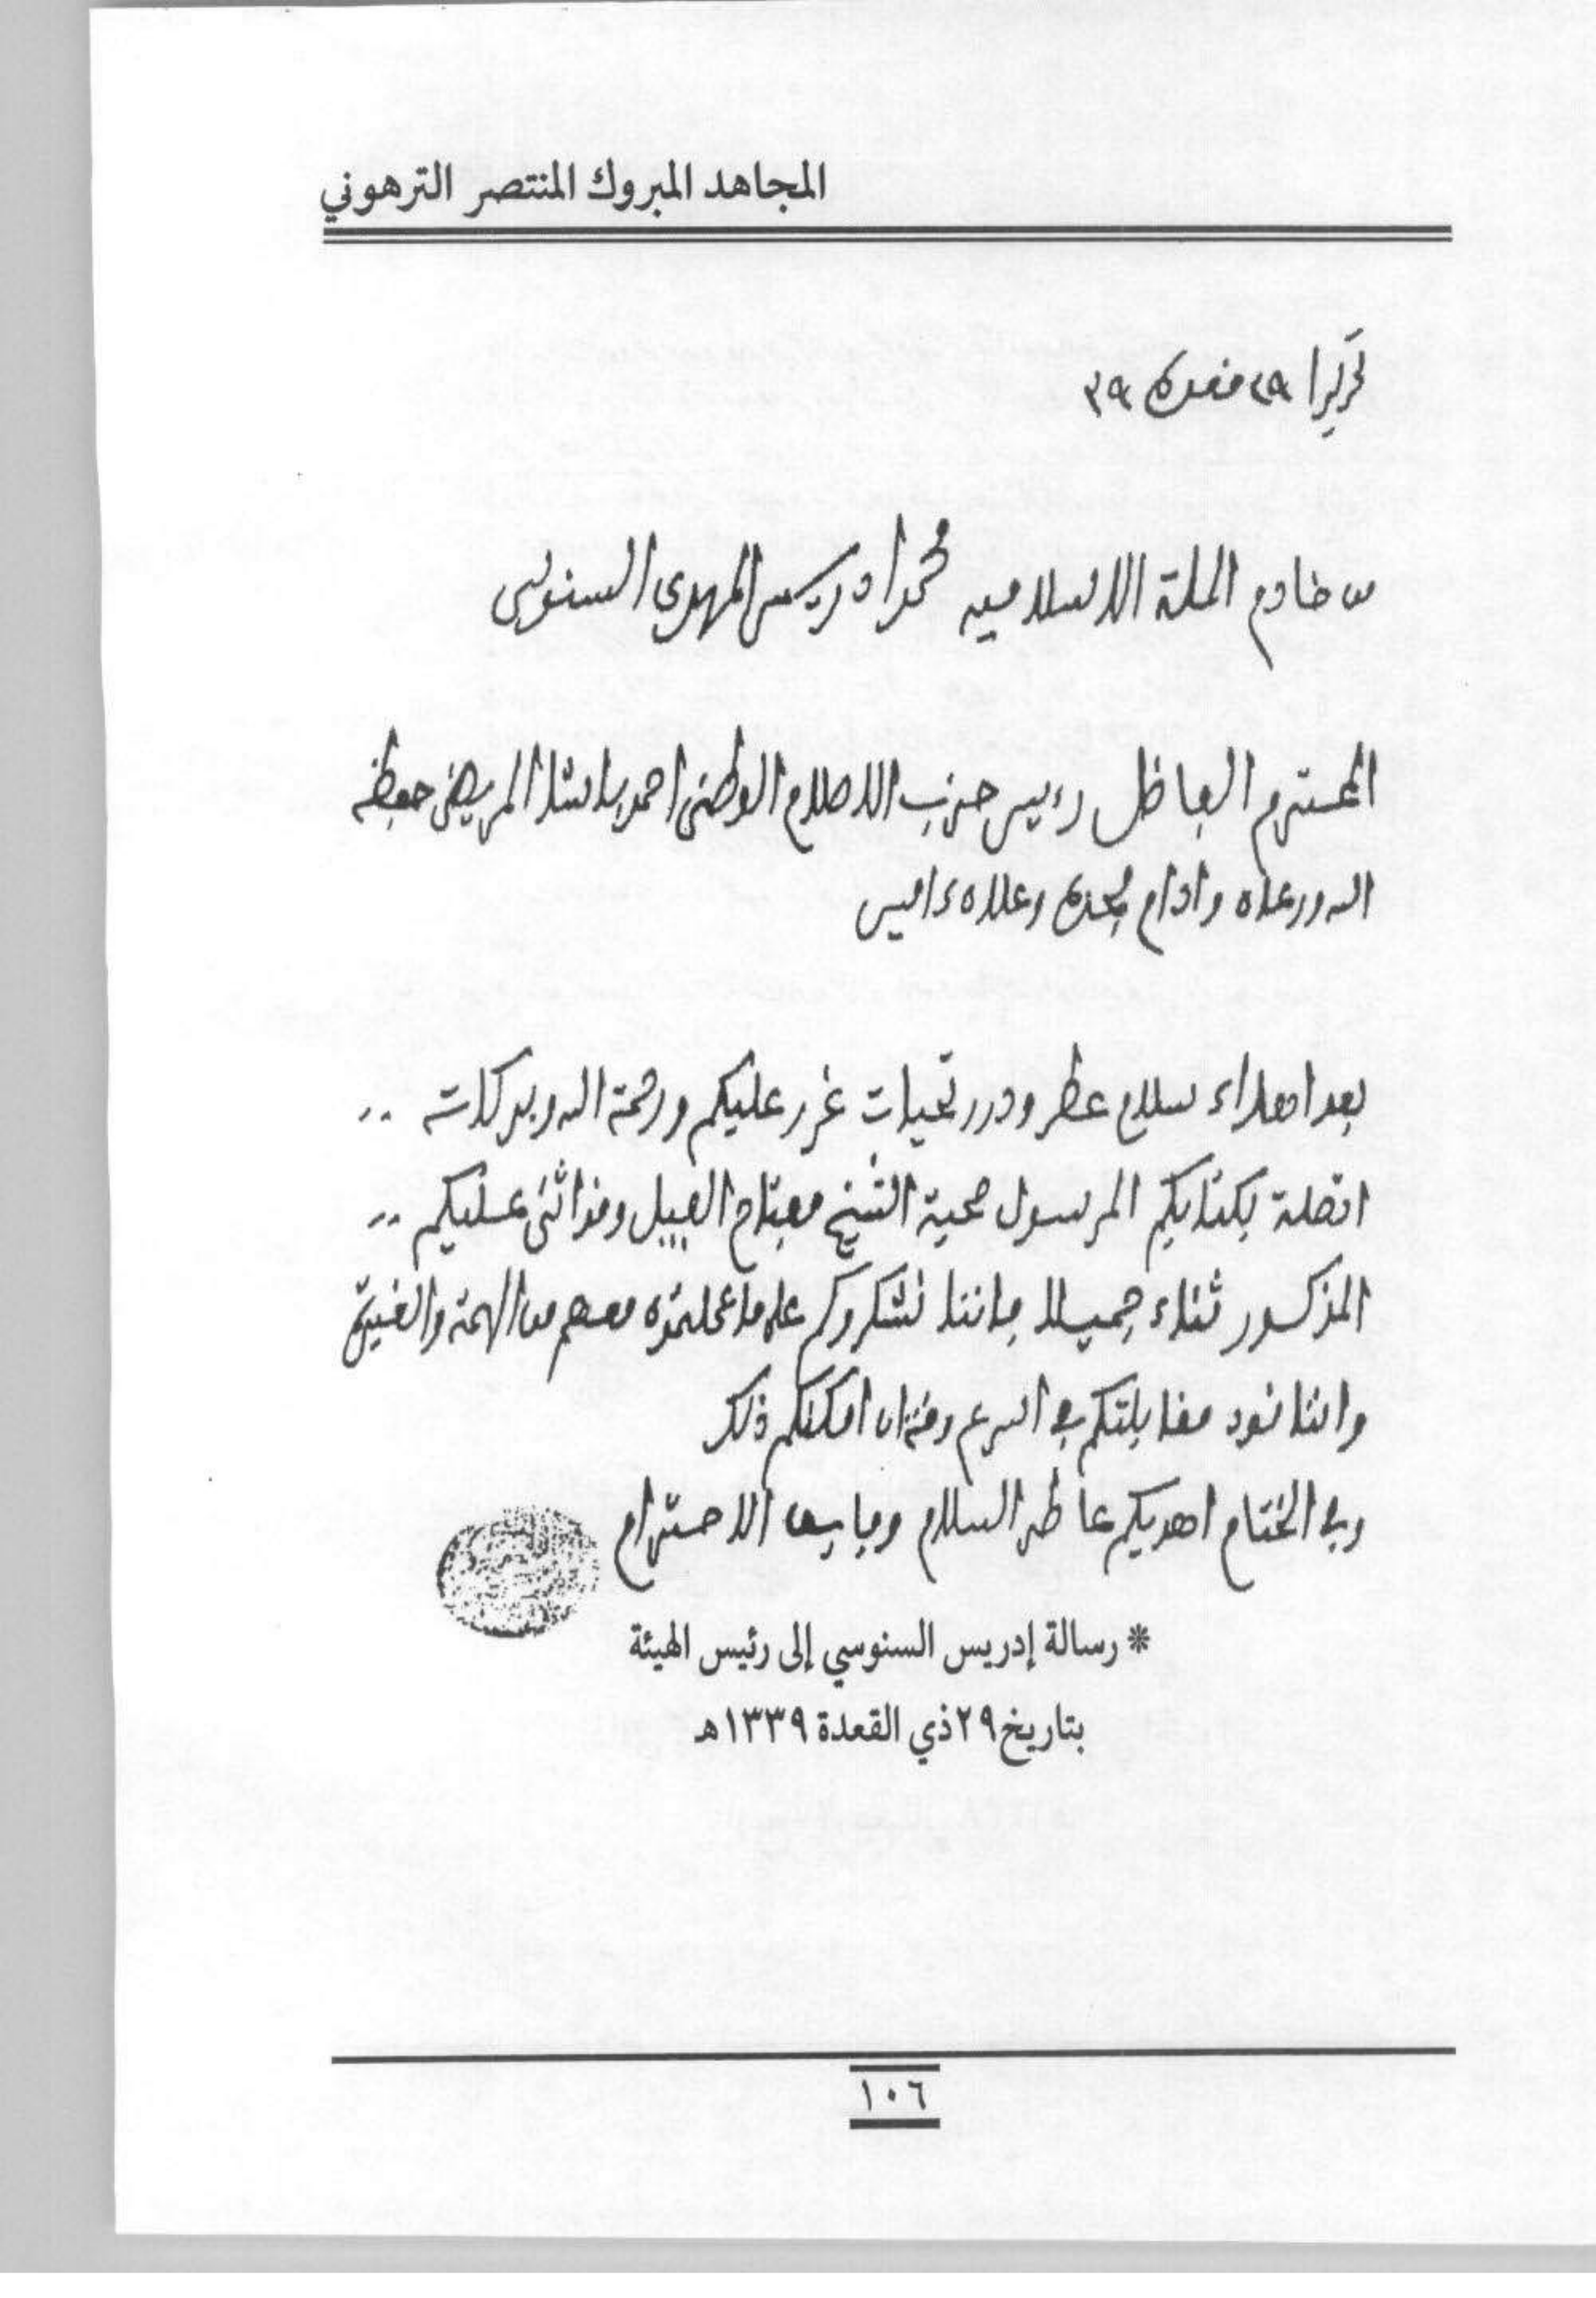 المجاهد المبروك المنتصر الترهوني
تحريرا ٢٩ قعدة ٣٩
من خادم الملة الاسلاميه محمد ادريس المهدي السنوسي
المحترم الفاضل رءيس حزب الاصلاح الوطني احمد باشا المريض حفظه
الله ورعاه وادام مجده وعلاه ءامين
بعد اهداء سلام عطر ودرر تحيات غرر عليكم ورحمة الله وبركاته ..
اتصلة بكتابكم المرسول صحبة الشيخ مفتاح وقد اثنى عليكم ..
المذكور ثناء جميلا فاننا نشكروكم على ما عملتموه معهم من الهمة والغيرة
واننا نود مقابلتكم في اسرع وقت ان امكنكم ذلك
وفي الختام اهديكم عاطر السلام وفايق الاحترام
* رسالة إدريس السنوسي إلى رئيس الهيئة
بتاريخ ٢٩ ذي القعدة ١٣٣٩هـ
١٠٦